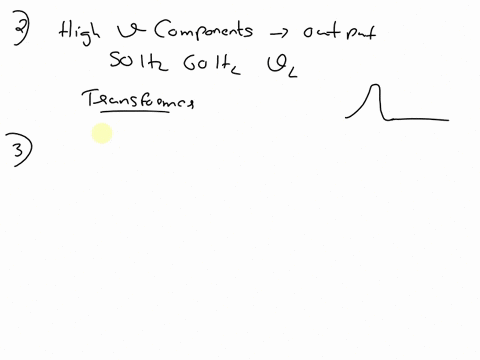 2) High ν Components → output
50 Hz 60 Hz ν_L
Transformer
3)